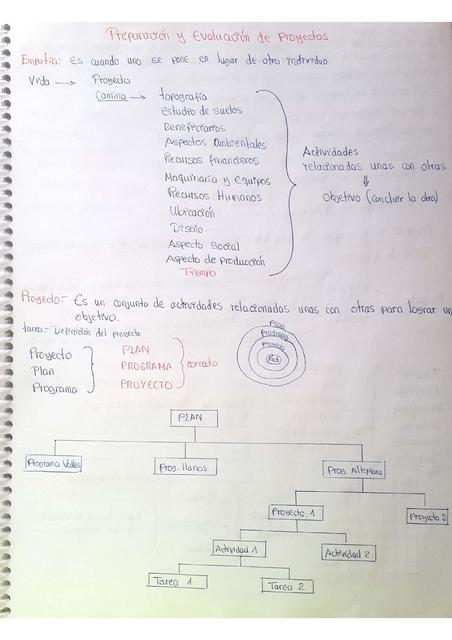 Preparación y Evaluación de Proyectos
Empatía: Es cuando uno se pone en lugar de otro individuo
Vida → Proyecto
Camino → topografía
estudio de suelos
Beneficiarios
Aspectos Ambientales
Recursos financieros
Maquinaria y equipos
Recursos Humanos
Ubicación
Diseño
Aspecto Social
Aspecto de producción
Tiempo
Actividades
relacionadas unas con otras
⇓
Objetivo (concluir la obra)
Proyecto:- Es un conjunto de actividades relacionadas unas con otras para lograr un
objetivo.
tarea:- Definición del proyecto
Proyecto
Plan
Programa
PLAN
PROGRAMA
PROYECTO
correcto
PLAN
Programa
Proyecto
Act
PLAN
Programa Valles
Prog. llanos
Prog. Altiplano
Proyecto 1
Proyecto 2
Actividad 1
Actividad 2
Tarea 1
Tarea 2